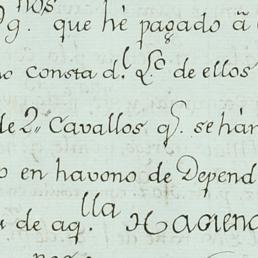 nos
9g. que hé pagado ã
o consta d.l Rc.o de ellos
de 2.. Cavallos q.e se hán
o en havono de Depend
de aq.lla Hacienc